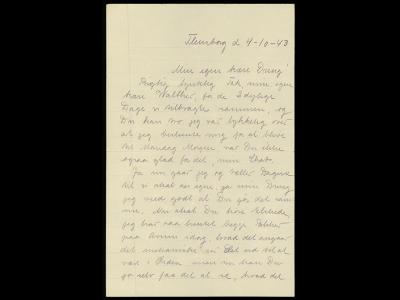 Flensborg d 4-10-43
Min egen kære Dreng!
Rigtig hjertelig Tak min egen
kære Walther, for de 2 dejlige
Dage vi tilbragte sammen, og
Du kan tro jeg var lykkelig over
at jeg bestemte mig for at blive
til Mandag Morgen, var Du ikke
ogsaa glad for det, min Skat.
Ja nu gaar jeg og tæller Dagene
til vi skal ses igen, ja min Dreng
jeg ved godt at Du gør det sam
me. Nu skal Du høre
jeg har begge
paa idag, hvad det angaar
det skal
være i Orden men nu kan Du
jo selv faa det at se, hvad det